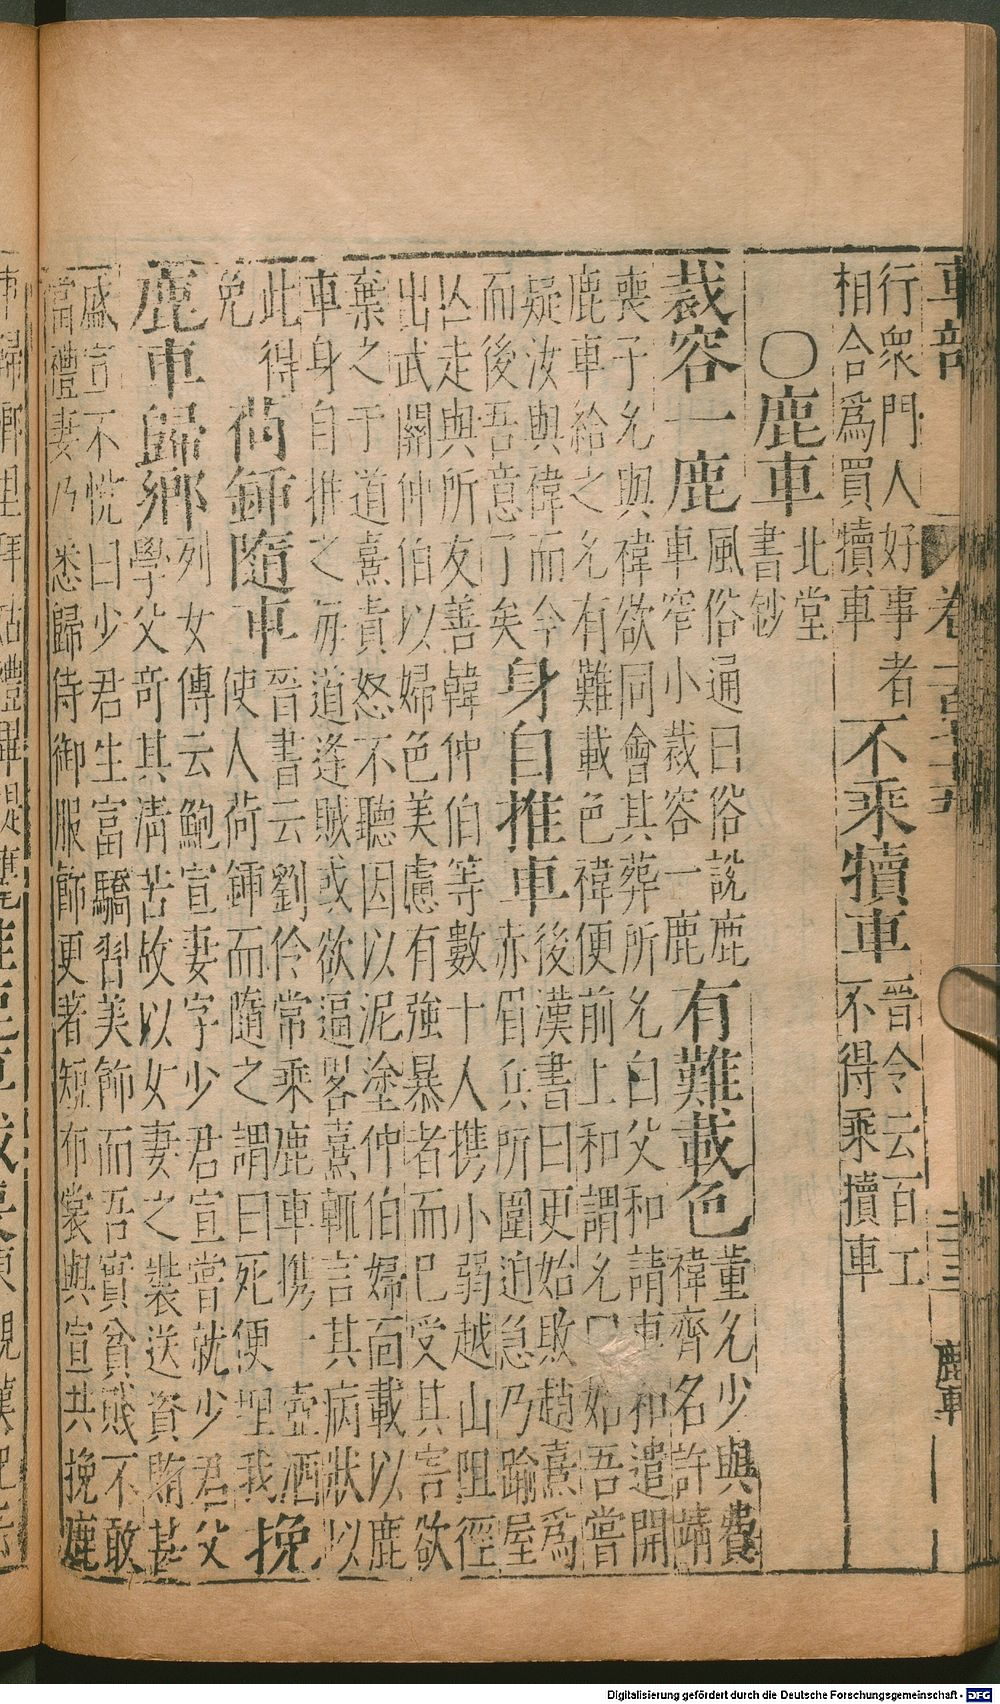 車部
鹿車
行衆門人好事者
相合爲買犢車
不乘犢車
晉令云百工
不得乘犢車
〇鹿車
北堂
書鈔
裁容一鹿
風俗通曰俗說鹿
車窄小裁容一鹿
有難載色
董允少與費
禕齊名許靖
喪子允與禕欲同會其葬所允白父和請車和遣開
鹿車給之允有難載色禕便前上和謂允曰始吾嘗
疑汝與禕而今
而後吾意了矣
身自推車
後漢書曰更始敗趙熹爲
赤眉兵所圍迫急乃踰屋
亾走與所友善韓仲伯等數十人携小弱越山阻徑
出武關仲伯以婦色美慮有強暴者而已受其害欲
棄之于道熹責怒不聽因以泥塗仲伯婦面載以鹿
車身自推之每道逢賊或欲逼畧熹輒言其病狀以
此得
免
荷鍤隨車
晉書云劉伶常乘鹿車携一壺酒
使人荷鍤而隨之謂曰死便埋我
挽
鹿車歸鄉
列女傳云鮑宣妻字少君宣嘗就少君父
學父奇其清苦故以女妻之裝送資賄甚
盛宣不悅曰少君生富驕習美飾而吾實貧賤不敢
當禮妻乃悉歸侍御服飾更著短布裳與宣共挽鹿
Digitalisierung gefördert durch die Deutsche Forschungsgemeinschaft - DFG